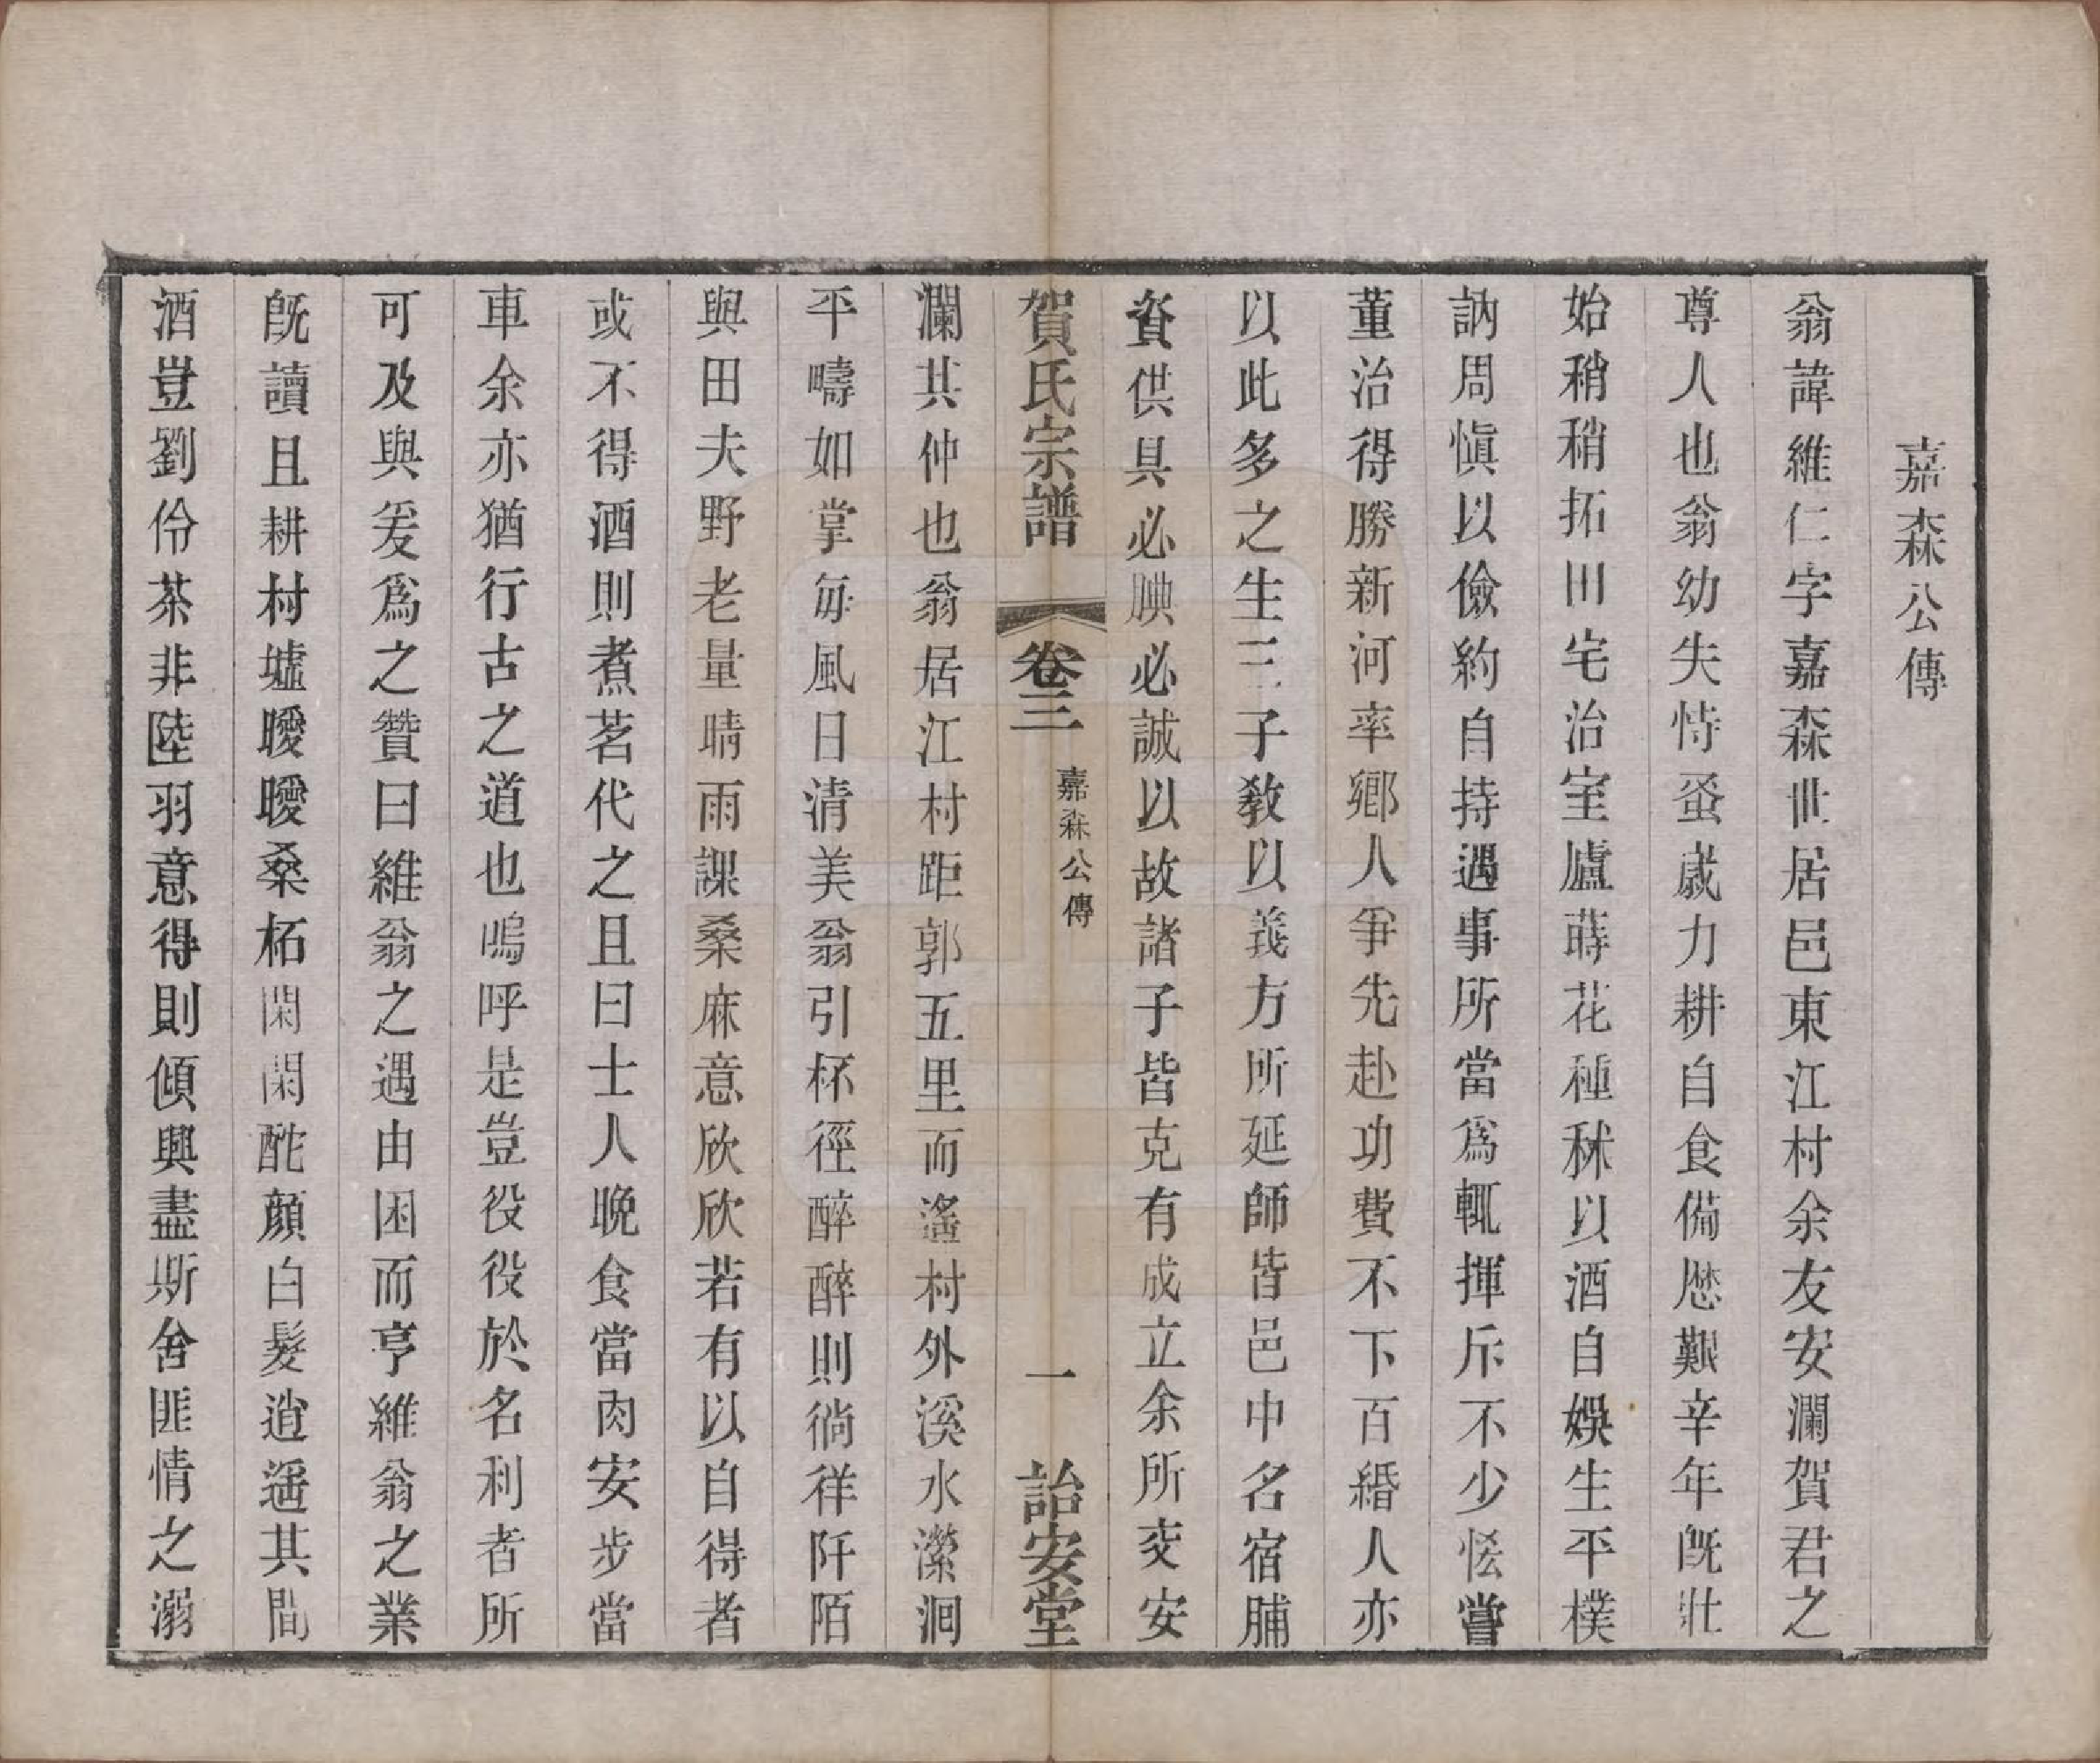 嘉森公傳
翁諱維仁字嘉森世居邑東江村余友安瀾賀君之
尊人也翁幼失恃蚤歲力耕自食備厯艱辛年旣壯
始稍稍拓田宅治室廬蒔花種秫以酒自娛生平樸
訥周愼以儉約自持遇事所當爲輒揮斥不少恡嘗
董治得勝新河率鄉人爭先赴功費不下百緡人亦
以此多之生三子敎以義方所延師皆邑中名宿脯
資供具必腆必誠以故諸子皆克有成立余所交安
賀氏宗譜 卷三 嘉森公傳 一 詒安堂
瀾其仲也翁居江村距郭五里而遙村外溪水瀠洄
平疇如掌每風日清美翁引杯徑醉醉則徜徉阡陌
與田夫野老量晴雨課桑麻意欣欣若有以自得者
或不得酒則煮茗代之且曰士人晚食當肉安步當
車余亦猶行古之道也嗚呼是豈役役於名利者所
可及與爰爲之贊曰維翁之遇由困而亨維翁之業
旣讀且耕村墟曖曖桑柘閑閑酡顏白髮逍遙其間
酒豈劉伶茶非陸羽意得則傾興盡斯舍匪情之溺